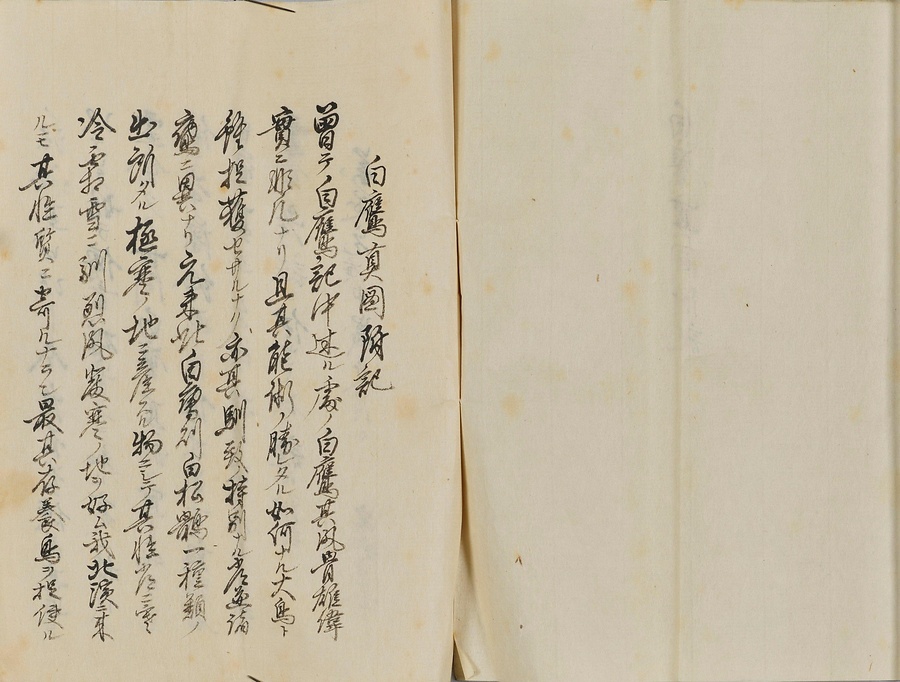 白鷹真圖附記
曽テ白鷹ノ記中述ル處ノ白鷹其風骨雄偉
實ニ非凡ナリ且其能術ノ勝タル如何ナル大鳥ト
雖捉獲セサルナリ亦其馴致ノ特別ナル
鷹ニ異ナリ元来此白鷹ハ則白松鶻一種類ノ
出所タル極寒ノ地ニ産ノ物ニシテ其性常ニ寒
冷霜雪ニ馴烈風寒ノ地ヲ好ム我北濱ニ来
ルモ其性質ニ寄ルナラン最其存養鳥ヲ捉使ル